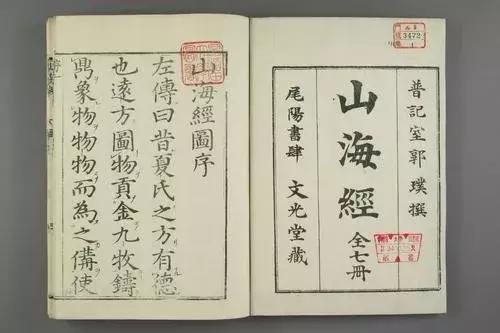 3472
晉記室郭璞撰
山海經 全七冊
尾陽書肆 文光堂藏
山海經圖序
左傳曰昔夏氏之方有德
也遠方圖物貢金九牧鑄
鼎象物物物而為之備使